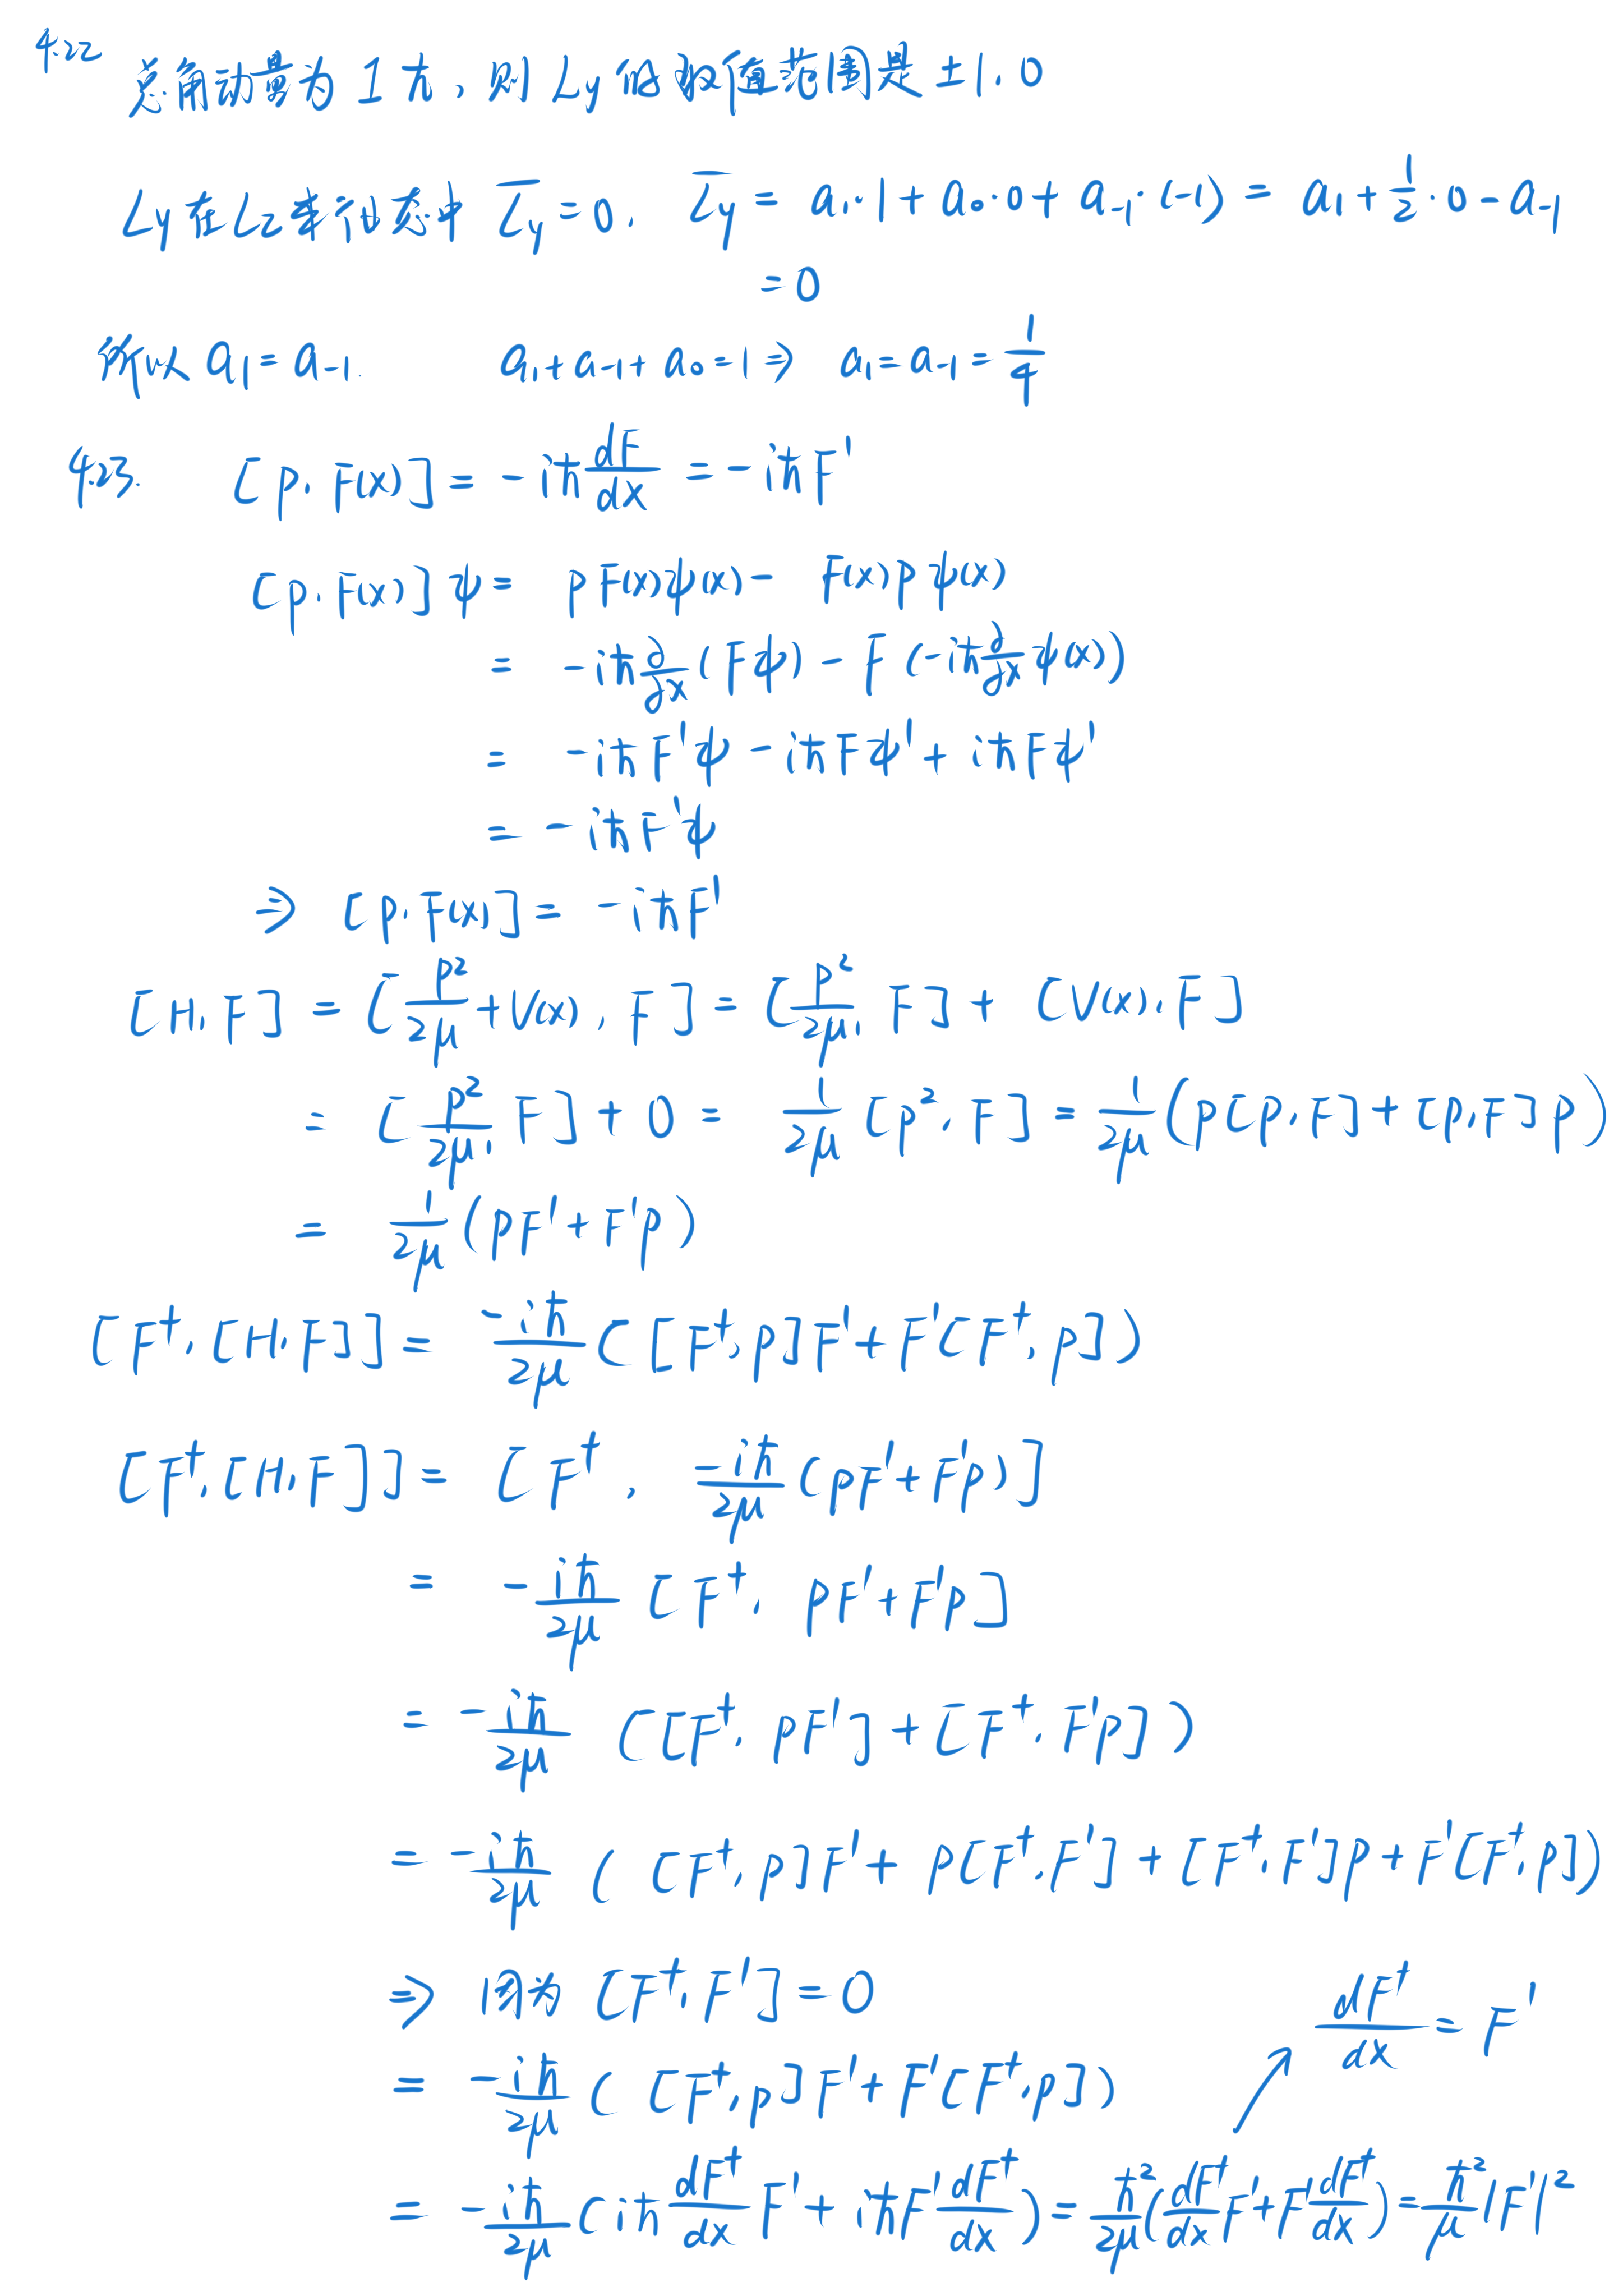 4.22 总角动量为1ħ, 则 Ly 的取值范围是 ±1.0
Ly 在 Lz 表示态中 \overline{L_y}=0. \overline{L_y} = a₁·1+a₀·0+a₋₁·(-1) = a₁+\frac{1}{2}·0-a₋₁
=0
所以 a₁=a₋₁. a₁+a₋₁+a₀=1 ⇒ a₁=a₋₁=\frac{1}{4}
4.23. [p, F(x)] = -iħ\frac{dF}{dx} = -iħF'
[p, F(x)]ψ = pF(x)ψ(x) - F(x)pψ(x)
= -iħ\frac{∂}{∂x}(Fψ) - F(-iħ\frac{∂}{∂x}ψ(x))
= -iħF'ψ - iħFψ' + iħFψ'
= -iħF'ψ
⇒ [p, F(x)] = -iħF'
[H, F] = [\frac{p²}{2μ}+V(x), F] = [\frac{p²}{2μ}, F] + [V(x), F]
= [\frac{p²}{2μ}, F] + 0 = \frac{1}{2μ}[p², F] = \frac{1}{2μ}(p[p, F]+[p, F]p)
= \frac{1}{2μ}(pF'+F'p)
[F†, [H, F]] = \frac{-iħ}{2μ}([F†, p]F'+F'[F†, p])
[F†, [H, F]] = [F†, \frac{-iħ}{2μ}(pF'+F'p)]
= -\frac{iħ}{2μ}[F†, pF'+F'p]
= -\frac{iħ}{2μ}([F†, pF']+[F†, F'p])
= -\frac{iħ}{2μ}([F†, p]F'+p[F†, F']+[F†, F']p+F'[F†, p])
⇒ 因为 [F†, F']=0
\frac{dF†}{dx}=F'
= -\frac{iħ}{2μ}([F†, p]F'+F'[F†, p])
= -\frac{iħ}{2μ}(iħ\frac{dF†}{dx}F'+iħF'\frac{dF†}{dx}) = \frac{ħ²}{2μ}(\frac{dF†}{dx}F'+F'\frac{dF†}{dx}) = \frac{ħ²}{μ}|F'|²